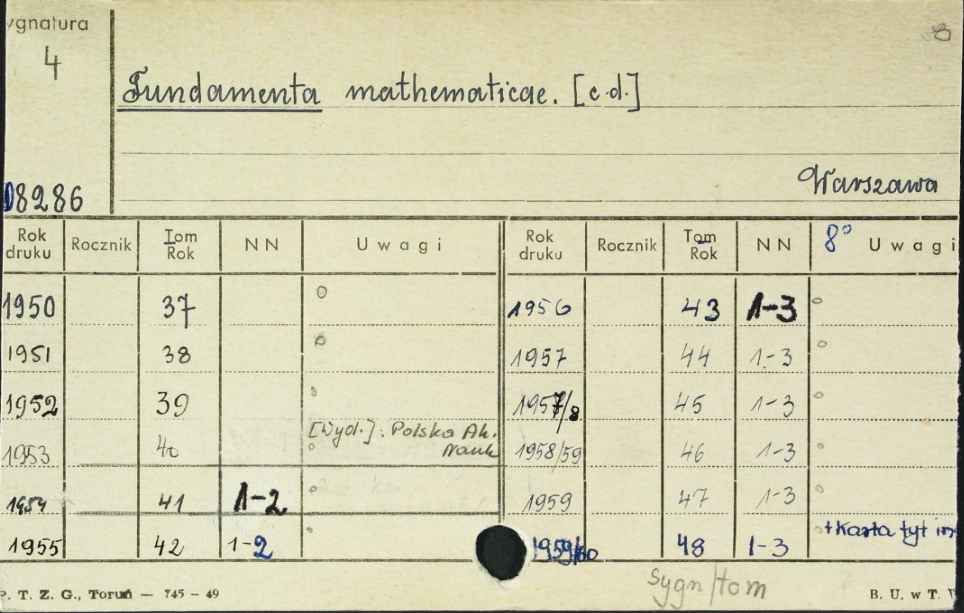 ygnatura
4
Fundamenta mathematicae. [c.d.]
Warszawa
08286
Rok druku Rocznik Tom Rok NN Uwagi Rok druku Rocznik Tom Rok NN 8° Uwagi
1950 37 1956 43 1-3
1951 38 1957 44 1-3
1952 39 1957/8 45 1-3
[Wyd.]: Polska Ak. Nauk
1953 40 1958/59 46 1-3
1954 41 1-2 1959 47 1-3
1955 42 1-2 1959/60 48 1-3 + Karta tyt
Sygn/tom
P. T. Z. G., Toruń — 745 — 49 B. U. w T.